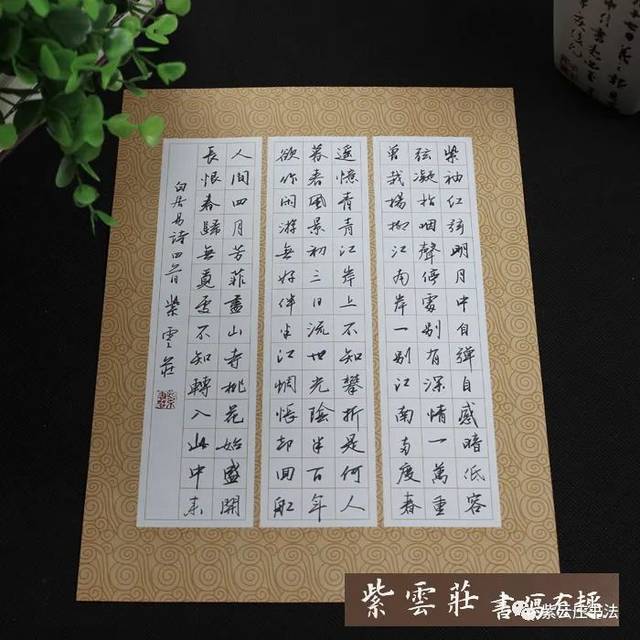 紫袖红弦明月中自彈自感暗低容
弦凝指咽聲停處别有深情一萬重
曾栽楊柳江南岸一别江南兩度春
遥憶青青江岸上不知攀折是何人
暮春風景初三日流世光陰半百年
欲作闲游無好伴半江惆悵却回船
人间四月芳菲盡山寺桃花始盛開
長恨春歸無覓處不知轉入此中来
白居易詩四首 紫雲莊
紫雲莊 書寫有
紫云庄书法